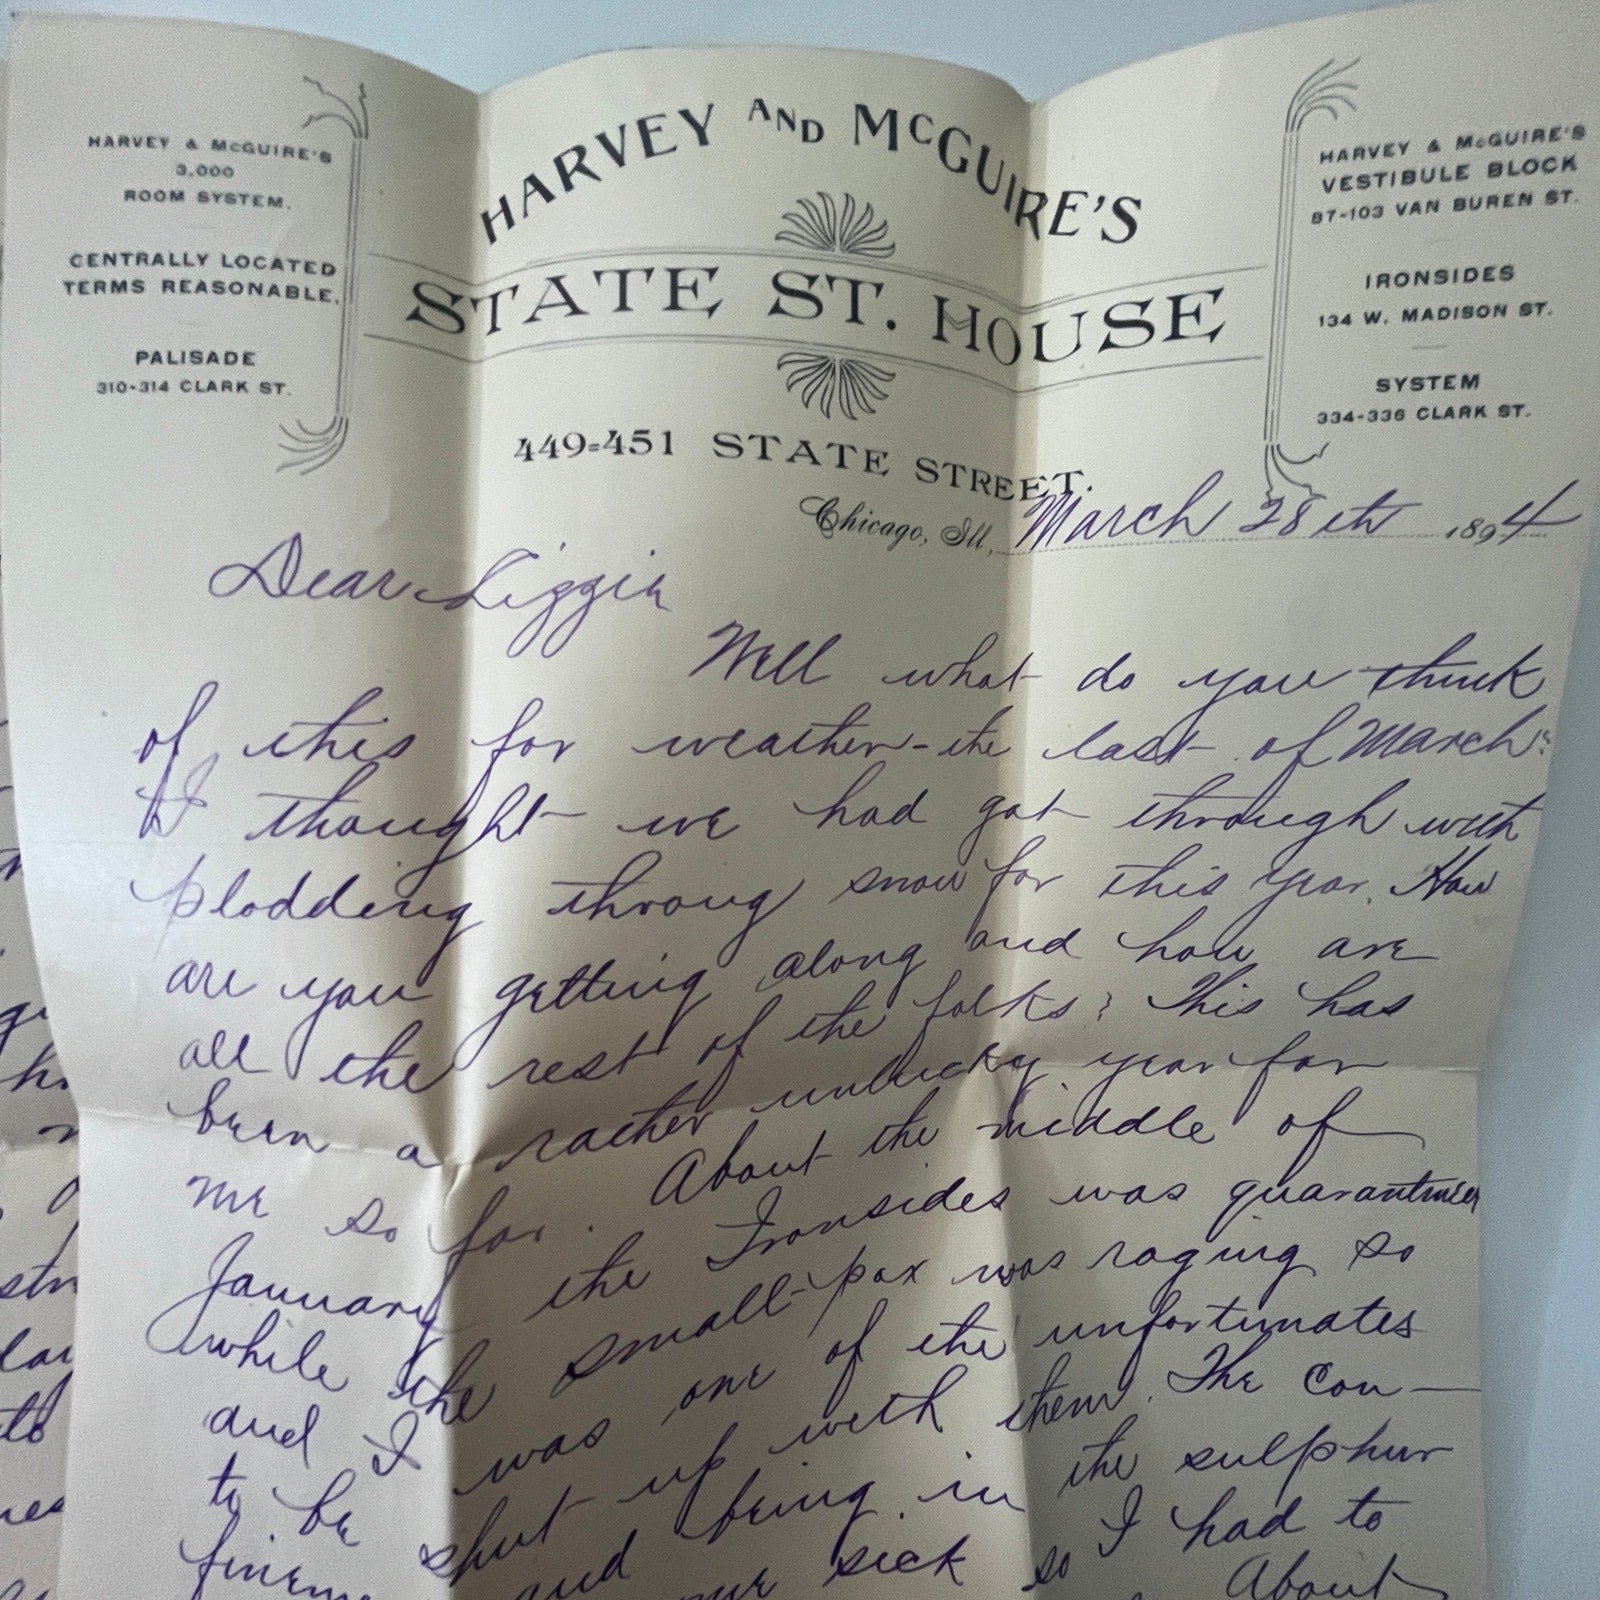 HARVEY & McGUIRE'S
3,000
ROOM SYSTEM.
CENTRALLY LOCATED
TERMS REASONABLE.
PALISADE
310-314 CLARK ST.
HARVEY AND McGUIRE'S
STATE ST. HOUSE
449=451 STATE STREET.
HARVEY & McGUIRE'S
VESTIBULE BLOCK
87-103 VAN BUREN ST.
IRONSIDES
134 W. MADISON ST.
SYSTEM
334-336 CLARK ST.
Chicago, Ill., March 28th 1894
Dear Lizzie
Well what do you think
of this for weather - the last of March?
I thought we had got through with
plodding throug snow for this year. How
are you getting along and how are
all the rest of the folks? This has
been a rather unlucky year for
me so far. About the middle of
January the Ironsides was quarantined
while the small-pox was raging so
and I was one of the unfortunates
to be shut up with them. The con-
finem and being in the sulphur
me sick so I had to
About